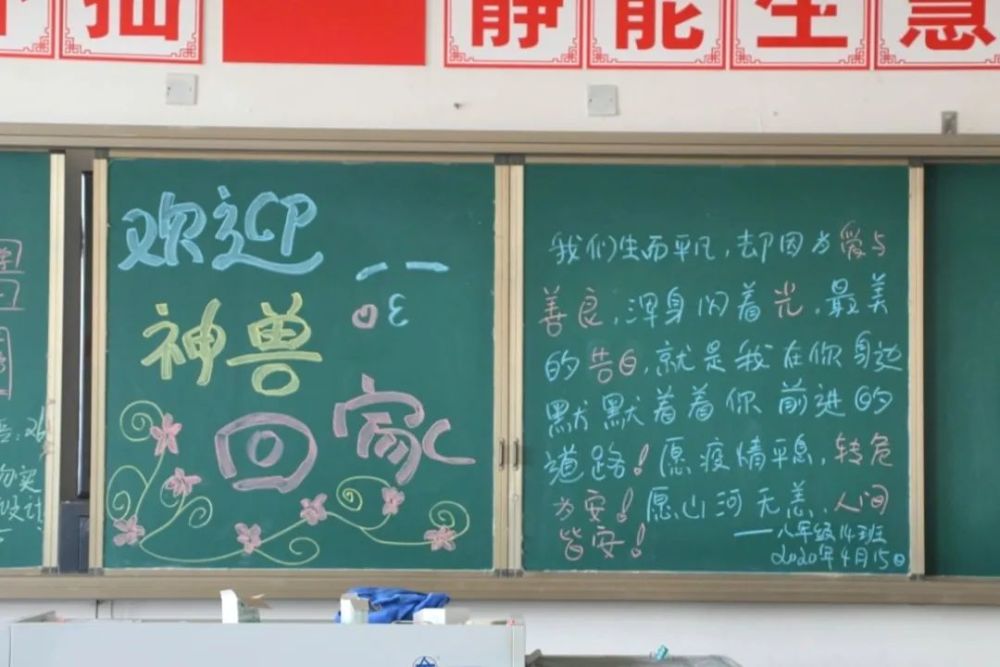 静能生慧
欢迎
神兽
回家
我们生而平凡，却因为爱与
善良，浑身闪着光，最美
的告白，就是我在你身边
默默看着你前进的
道路！愿疫情平息，转危
为安！愿山河无恙，人间
皆安！
——八年级14班
2020年4月15日